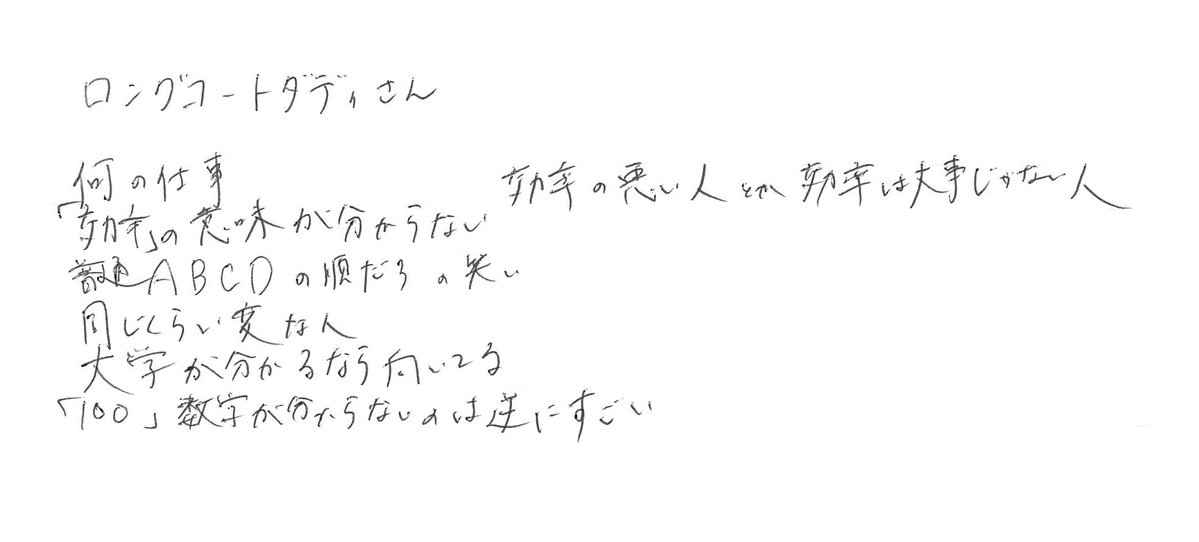 ロングコートダディさん
何の仕事
効率の悪い人とか効率は大事じゃない人
「効率」の意味が分からない
普通ABCDの順だろの笑い
同じくらい変な人
大学が分かるなら向いてる
「100」数字が分からないのは逆にすごい